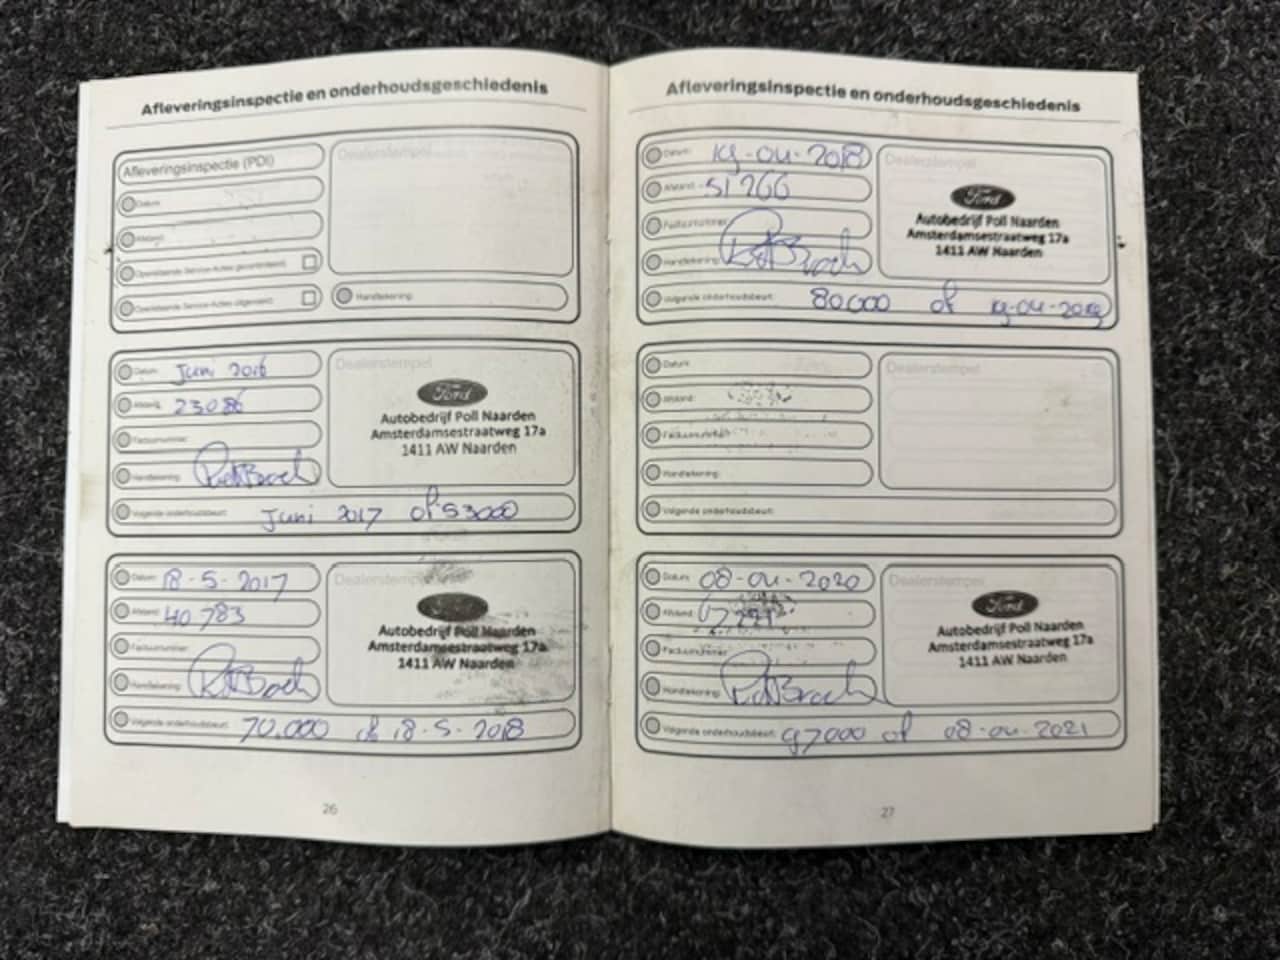 Afleveringsinspectie en onderhoudsgeschiedenis
Afleveringsinspectie (PDI)
Datum:
Afstand:
Handtekening:
Dealerstempel
Datum: Juni 2016
Afstand: 23086
Factuurnummer:
Handtekening:
Volgende onderhoudsbeurt: Juni 2017 of 53000
Dealerstempel
Ford
Autobedrijf Poll Naarden
Amsterdamsestraatweg 17a
1411 AW Naarden
Datum: 18-5-2017
Afstand: 40783
Factuurnummer:
Handtekening:
Volgende onderhoudsbeurt: 70.000 of 18-5-2018
Dealerstempel
Ford
Autobedrijf Poll Naarden
Amsterdamsestraatweg 17a
1411 AW Naarden
26
Afleveringsinspectie en onderhoudsgeschiedenis
Datum: 19-04-2018
Afstand:
Factuurnummer:
Handtekening:
Volgende onderhoudsbeurt: 80000 of 19-04-2019
Dealerstempel
Ford
Autobedrijf Poll Naarden
Amsterdamsestraatweg 17a
1411 AW Naarden
Datum:
Afstand:
Factuurnummer:
Handtekening:
Volgende onderhoudsbeurt:
Dealerstempel
Datum: 08-04-2020
Afstand:
Factuurnummer:
Handtekening:
Volgende onderhoudsbeurt: 97000 of 08-04-2021
Dealerstempel
Ford
Autobedrijf Poll Naarden
Amsterdamsestraatweg 17a
1411 AW Naarden
27